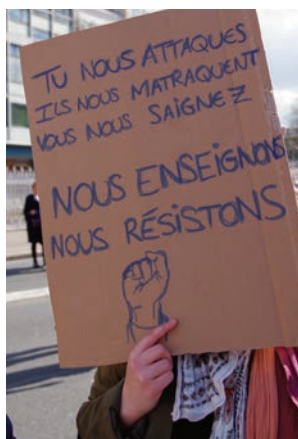 TU NOUS ATTAQUES
ILS NOUS MATRAQUENT
VOUS NOUS SAIGNEZ
NOUS ENSEIGNONS
NOUS RÉSISTONS